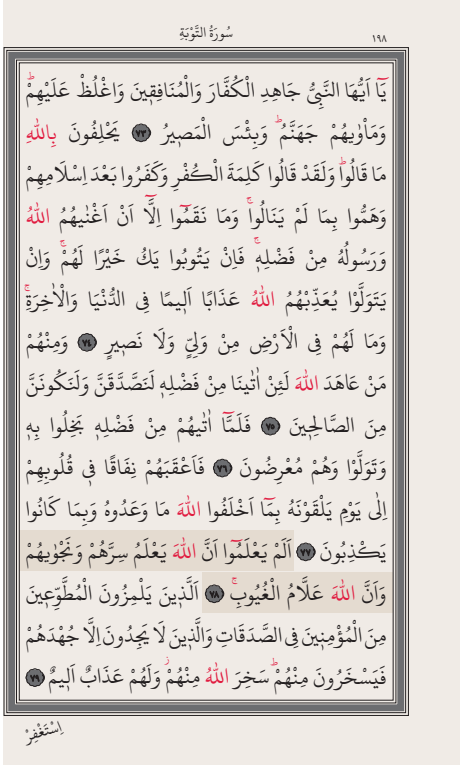 سُورَةُ التَّوْبَةِ ١٩٨
يَٓا اَيُّهَا النَّبِيُّ جَاهِدِ الْكُفَّارَ وَالْمُنَافِق۪ينَ وَاغْلُظْ عَلَيْهِمْۜ
وَمَأْوٰيهُمْ جَهَنَّمُۜ وَبِئْسَ الْمَص۪يرُ ﴿٧٣﴾ يَحْلِفُونَ بِاللّٰهِ
مَا قَالُواۜ وَلَقَدْ قَالُوا كَلِمَةَ الْكُفْرِ وَكَفَرُوا بَعْدَ اِسْلَامِهِمْ
وَهَمُّوا بِمَا لَمْ يَنَالُواۚ وَمَا نَقَمُٓوا اِلَّٓا اَنْ اَغْنٰيهُمُ اللّٰهُ
وَرَسُولُهُ مِنْ فَضْلِه۪ۚ فَاِنْ يَتُوبُوا يَكُ خَيْرًا لَهُمْۚ وَاِنْ
يَتَوَلَّوْا يُعَذِّبْهُمُ اللّٰهُ عَذَابًا اَل۪يمًا فِي الدُّنْيَا وَالْاٰخِرَةِۚ
وَمَا لَهُمْ فِي الْاَرْضِ مِنْ وَلِيٍّ وَلَا نَص۪يرٍ ﴿٧٤﴾ وَمِنْهُمْ
مَنْ عَاهَدَ اللّٰهَ لَئِنْ اٰتٰينَا مِنْ فَضْلِه۪ لَنَصَّدَّقَنَّ وَلَنَكُونَنَّ
مِنَ الصَّالِح۪ينَ ﴿٧٥﴾ فَلَمَّٓا اٰتٰيهُمْ مِنْ فَضْلِه۪ بَخِلُوا بِه۪
وَتَوَلَّوْا وَهُمْ مُعْرِضُونَ ﴿٧٦﴾ فَاَعْقَبَهُمْ نِفَاقًا ف۪ي قُلُوبِهِمْ
اِلٰى يَوْمِ يَلْقَوْنَهُ بِمَٓا اَخْلَفُوا اللّٰهَ مَا وَعَدُوهُ وَبِمَا كَانُوا
يَكْذِبُونَ ﴿٧٧﴾ اَلَمْ يَعْلَمُٓوا اَنَّ اللّٰهَ يَعْلَمُ سِرَّهُمْ وَنَجْوٰيهُمْ
وَاَنَّ اللّٰهَ عَلَّامُ الْغُيُوبِۚ ﴿٧٨﴾ اَلَّذ۪ينَ يَلْمِزُونَ الْمُطَّوِّع۪ينَ
مِنَ الْمُؤْمِن۪ينَ فِي الصَّدَقَاتِ وَالَّذ۪ينَ لَا يَجِدُونَ اِلَّا جُهْدَهُمْ
فَيَسْخَرُونَ مِنْهُمْۜ سَخِرَ اللّٰهُ مِنْهُمْۘ وَلَهُمْ عَذَابٌ اَل۪يمٌ ﴿٧٩﴾
اِسْتَغْفِرْ